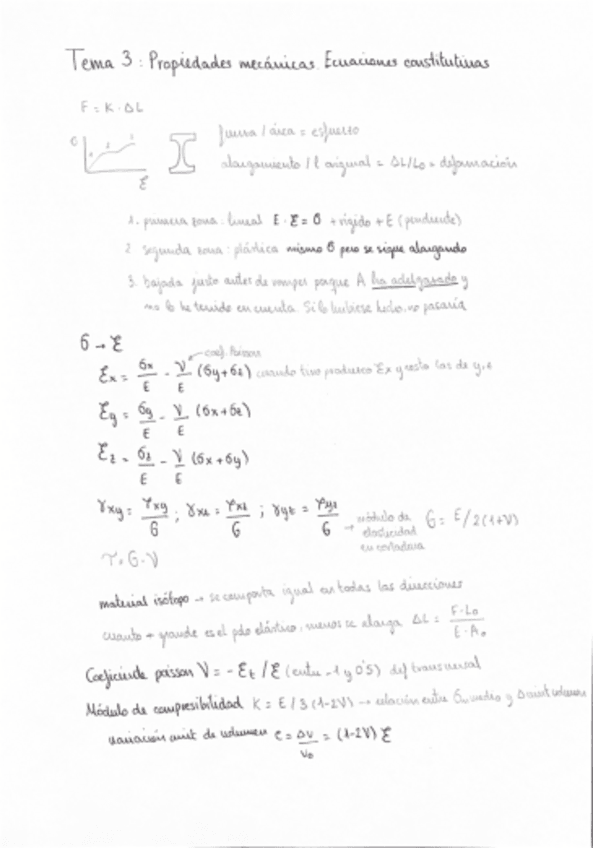 Tema 3 : Propiedades mecánicas. Ecuaciones constitutivas
F = K · ΔL
fuerza / área = esfuerzo
alargamiento / l original = ΔL/L₀ = deformación
σ
1 2 3
ε
1. primera zona: lineal E · ε = σ + rígido + E (pendiente)
2. segunda zona: plástica mismo σ pero se sigue alargando
3. bajada justo antes de romper porque A ha adelgazado y
no lo he tenido en cuenta. Si lo hubiese hecho, no pasaría
σ → ε
coef. Poisson
εx = σx/E - ν/E (σy+σz) cuando tiro produzco εx y resto las de y, z
εy = σy/E - ν/E (σx+σz)
εz = σz/E - ν/E (σx+σy)
γxy = τxy/G ; γxz = τxz/G ; γyz = τyz/G → módulo de elasticidad en cortadura G = E/2(1+ν)
τ = G · γ
material isótopo → se comporta igual en todas las direcciones
cuanto + grande es el mdo elástico, menos se alarga ΔL = F·L₀/E·A₀
Coeficiente poisson ν = - εt / ε (entre -1 y 0'5) def transversal
Módulo de compresibilidad K = E / 3 (1-2ν) → relación entre σm medio y Δ unit volumen
variación unit de volumen e = Δv/v₀ = (1-2ν) ε